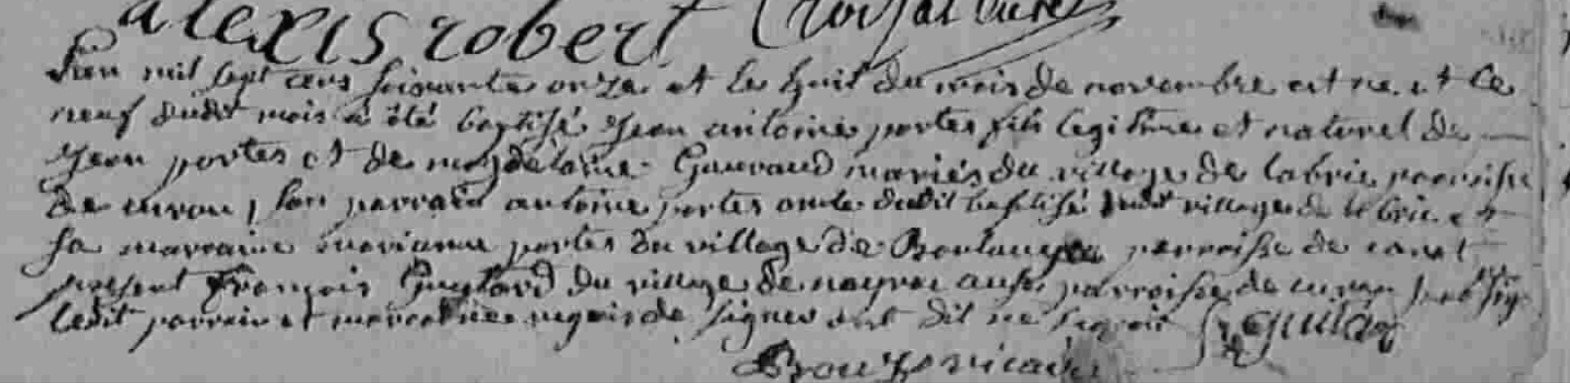 alexis robert
L'an mil sept cens soixante onze et le huit du mois de novembre est ne et le
neuf dudit mois a été baptisé Jean antoine portes fils legitime et naturel de
Jean portes et de magdelaine Gauraud mariés du village de labrie parroisse
de curvan, son parrain antoine portes oncle dudit baptisé dudit village de labrie et
sa marraine marianne portes du village de parroisse de canet
présent françois du village de nayrac aussi parroisse de curvan
ledit parrain et marraine requis de signer ont dit ne sçavoir
vicaire